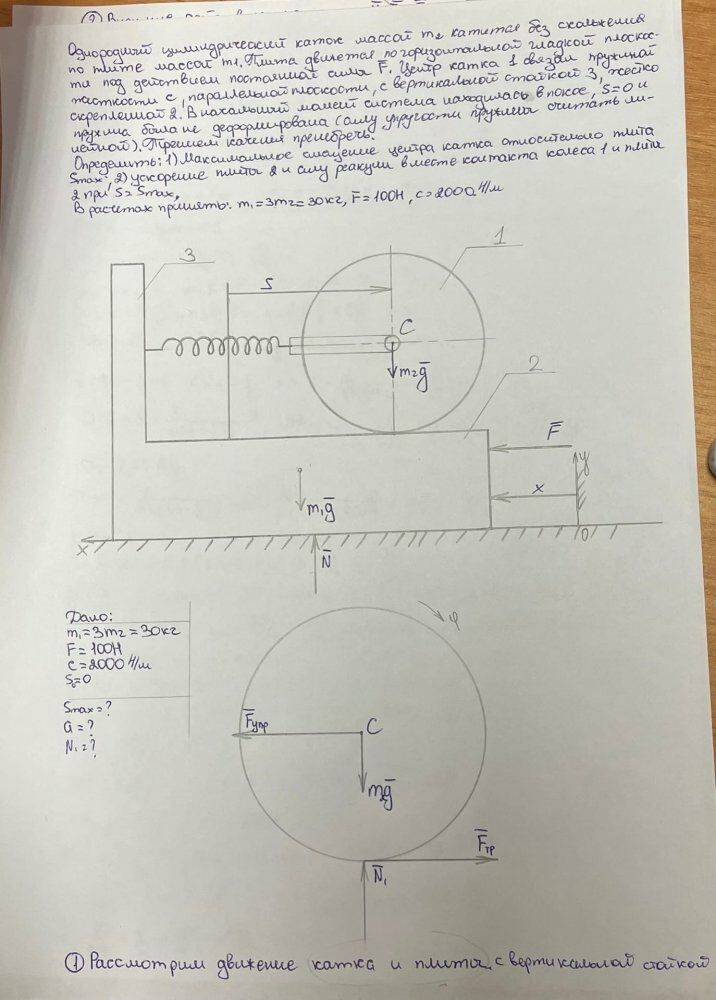 Однородный цилиндрический каток массой m₂ катится без скольжения
по плите массой m₁. Плита движется по горизонтальной гладкой плоскос-
ти под действием постоянной силы F̅. Центр катка 1 связан пружиной
жесткости c, параллельной плоскости, с вертикальной стойкой 3, жестко
скрепленной 2. В начальный момент система находилась в покое, S=0 и
пружина была не деформирована (силу упругости пружины считать ли-
нейной). Трением качения пренебречь.
Определить: 1) Максимальное смещение центра катка относительно плиты
Smax. 2) ускорение плиты 2 и силу реакции в месте контакта колеса 1 и плиты
2 при S=Smax.
В расчетах принять: m₁=3m₂=30кг, F̅=100Н, c=2000 Н/м
3
1
S
C
m₂g̅
2
F̅
y
x
m₁g̅
x
N̅
0
Дано:
m₁=3m₂=30кг
F=100Н
c=2000 Н/м
S₀=0
Smax=?
a=?
N₁=?
φ
F̅упр
C
m₂g̅
F̅тр
N̅₁
① Рассмотрим движение катка и плиты с вертикальной стойкой